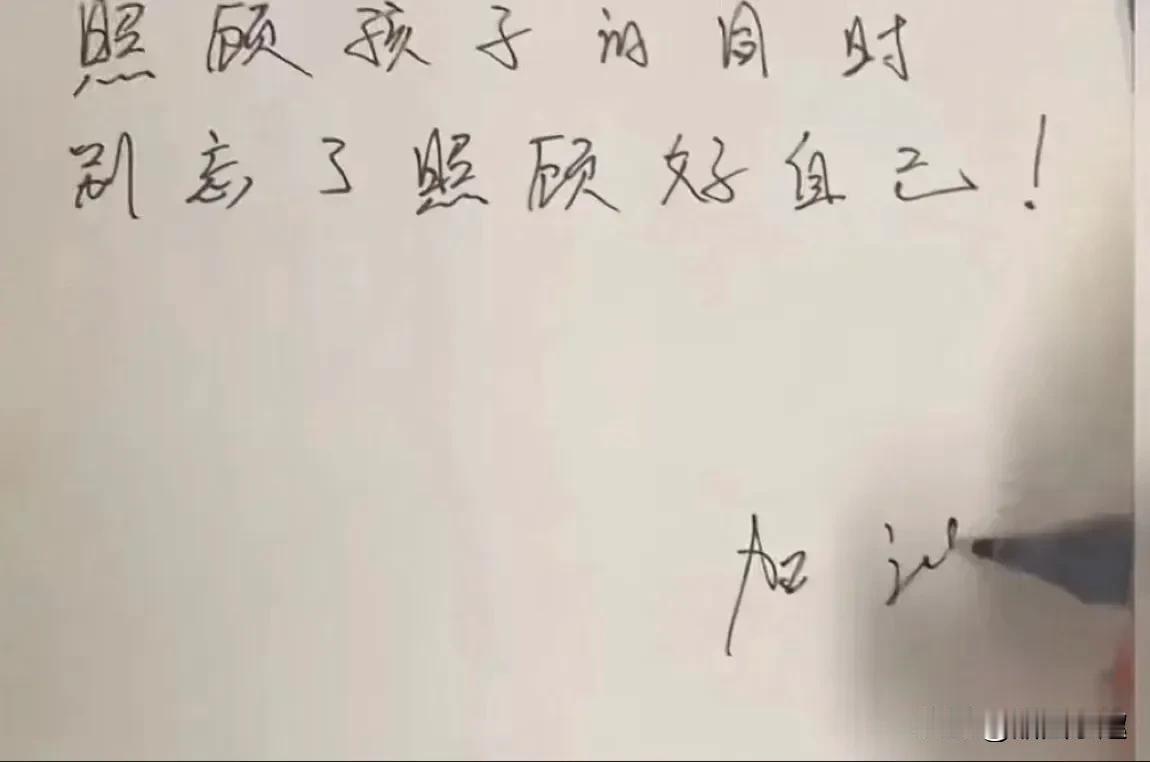 照顾孩子的同时
别忘了照顾好自己!
加